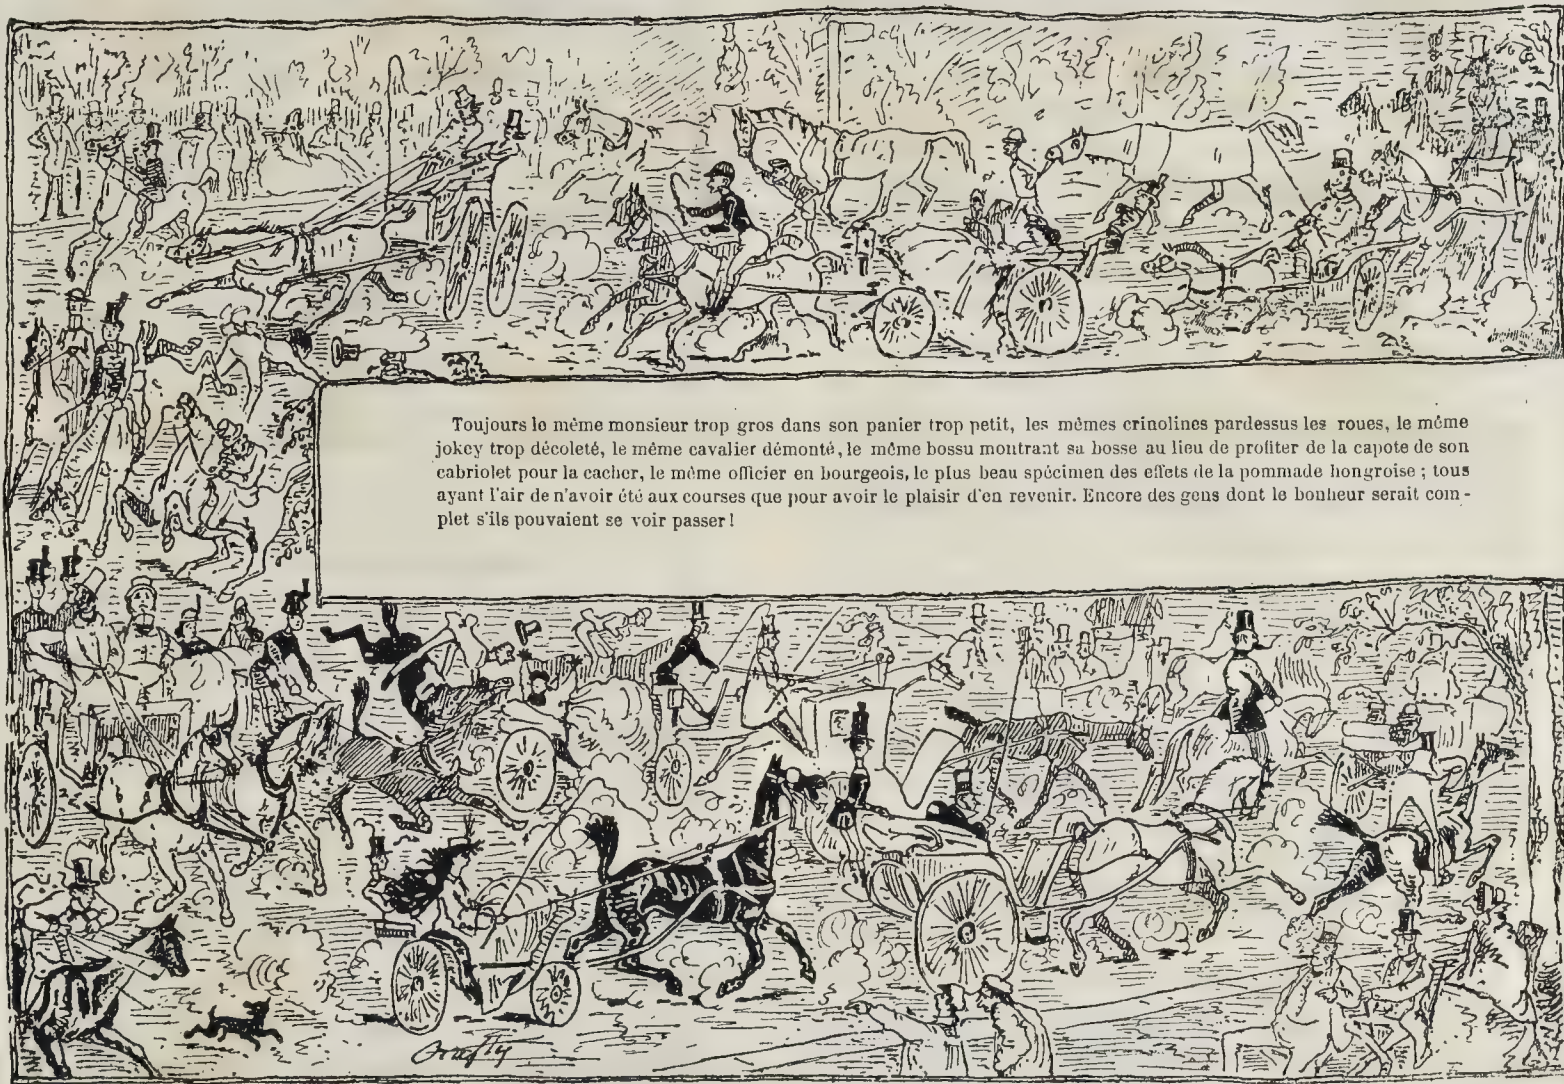 Toujours le même monsieur trop gros dans son panier trop petit, les mêmes crinolines pardessus les roues, le même
jokey trop décoleté, le même cavalier démonté, le même bossu montrant sa bosse au lieu de profiter de la capote de son
cabriolet pour la cacher, le même officier en bourgeois, le plus beau spécimen des effets de la pommade hongroise ; tous
ayant l'air de n'avoir été aux courses que pour avoir le plaisir d'en revenir. Encore des gens dont le bonheur serait com-
plet s'ils pouvaient se voir passer !
Crafty